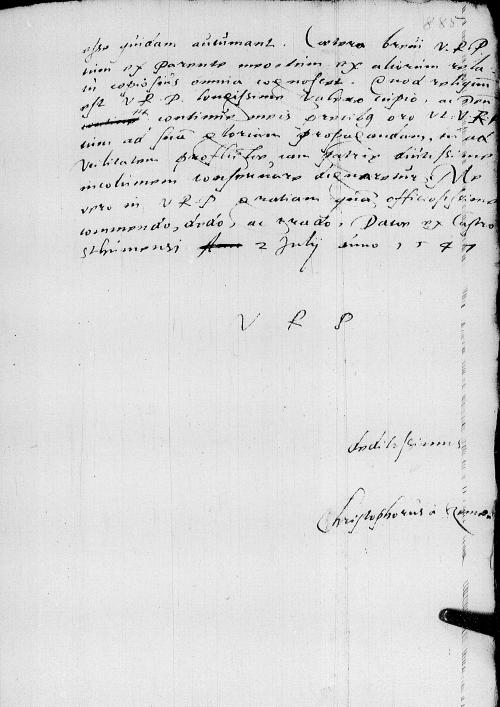 885
esse quidam autumant. Cætera breui V.R.P.
tum ex parente meo tum ex aliorum rela
tu copiosius omnia cognoscet. Quod reliquum
est V.R.P. longissime valere cupio, ac Deum
continuis meis precibus oro vt V.R.P
tum ad suã gloriam propagandam, tum ad
vtilitatem patriæ diutissime
incolumem conseruare dignaretur. Me
vero in V.R.P. gratiam quã officiosissime
commendo, dedo, ac trado, Datæ ex Castro
2 Julij anno, 1547
V R P
deditissimus
Christophorus à